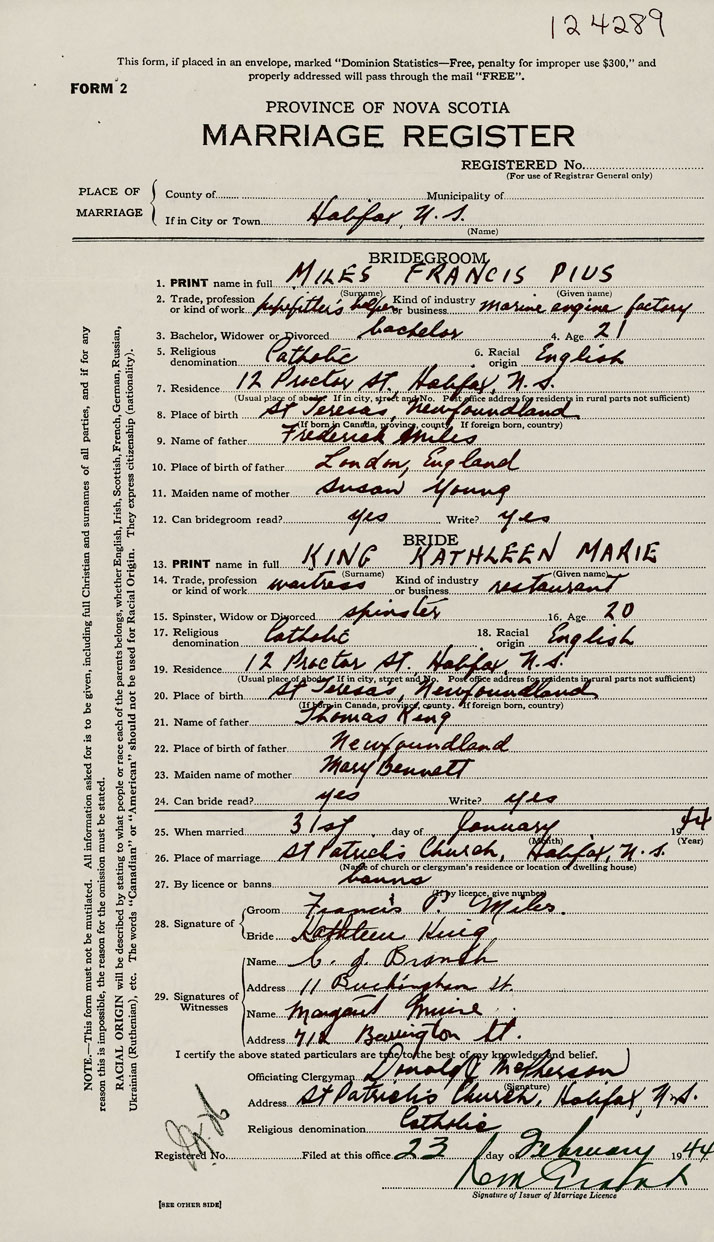 124289
This form, if placed in an envelope, marked "Dominion Statistics—Free, penalty for improper use $300," and
properly addressed will pass through the mail "FREE".
FORM 2
PROVINCE OF NOVA SCOTIA
MARRIAGE REGISTER
REGISTERED No.
(For use of Registrar General only)
PLACE OF MARRIAGE
County of Municipality of
If in City or Town Halifax, N.S.
(Name)
BRIDEGROOM
1. PRINT name in full MILES FRANCIS PIUS
(Surname) (Given name)
2. Trade, profession or kind of work pipefitter's helper Kind of industry or business marine engine factory
3. Bachelor, Widower or Divorced bachelor 4. Age 21
5. Religious denomination Catholic 6. Racial origin English
7. Residence 12 Proctor St. Halifax, N.S.
(Usual place of abode. If in city, street and No. Post office address for residents in rural parts not sufficient)
8. Place of birth St Teresas, Newfoundland
(If born in Canada, province, county. If foreign born, country)
9. Name of father Frederick Miles
10. Place of birth of father London, England
11. Maiden name of mother Susan Young
12. Can bridegroom read? yes Write? yes
BRIDE
13. PRINT name in full KING KATHLEEN MARIE
(Surname) (Given name)
14. Trade, profession or kind of work waitress Kind of industry or business restaurant
15. Spinster, Widow or Divorced spinster 16. Age 20
17. Religious denomination Catholic 18. Racial origin English
19. Residence 12 Proctor St. Halifax, N.S.
(Usual place of abode. If in city, street and No. Post office address for residents in rural parts not sufficient)
20. Place of birth St Teresas, Newfoundland
(If born in Canada, province, county. If foreign born, country)
21. Name of father Thomas King
22. Place of birth of father Newfoundland
23. Maiden name of mother Mary Bennett
24. Can bride read? yes Write? yes
25. When married 31st day of January 1944
(Month) (Year)
26. Place of marriage St Patrick's Church, Halifax, N.S.
(Name of church or clergyman's residence or location of dwelling house)
27. By licence or banns banns
(If by licence, give number)
28. Signature of
Groom Francis P. Miles.
Bride Kathleen King
29. Signatures of Witnesses
Name C. J. Branch
Address 11 Buckingham St.
Name Margaret
Address 712 Barrington St.
I certify the above stated particulars are true to the best of my knowledge and belief.
Officiating Clergyman Donald McPherson
(Signature)
Address St Patrick's Church, Halifax, N.S.
Religious denomination Catholic
Registered No. Filed at this office 23 day of February 1944
Signature of Issuer of Marriage Licence
[SEE OTHER SIDE]
NOTE.—This form must not be mutilated. All information asked for is to be given, including full Christian and surnames of all parties, and if for any
reason this is impossible, the reason for the omission must be stated.
RACIAL ORIGIN will be described by stating to what people or race each of the parents belongs, whether English, Irish, Scottish, French, German, Russian,
Ukrainian (Ruthenian), etc. The words "Canadian" or "American" should not be used for Racial Origin. They express citizenship (nationality).